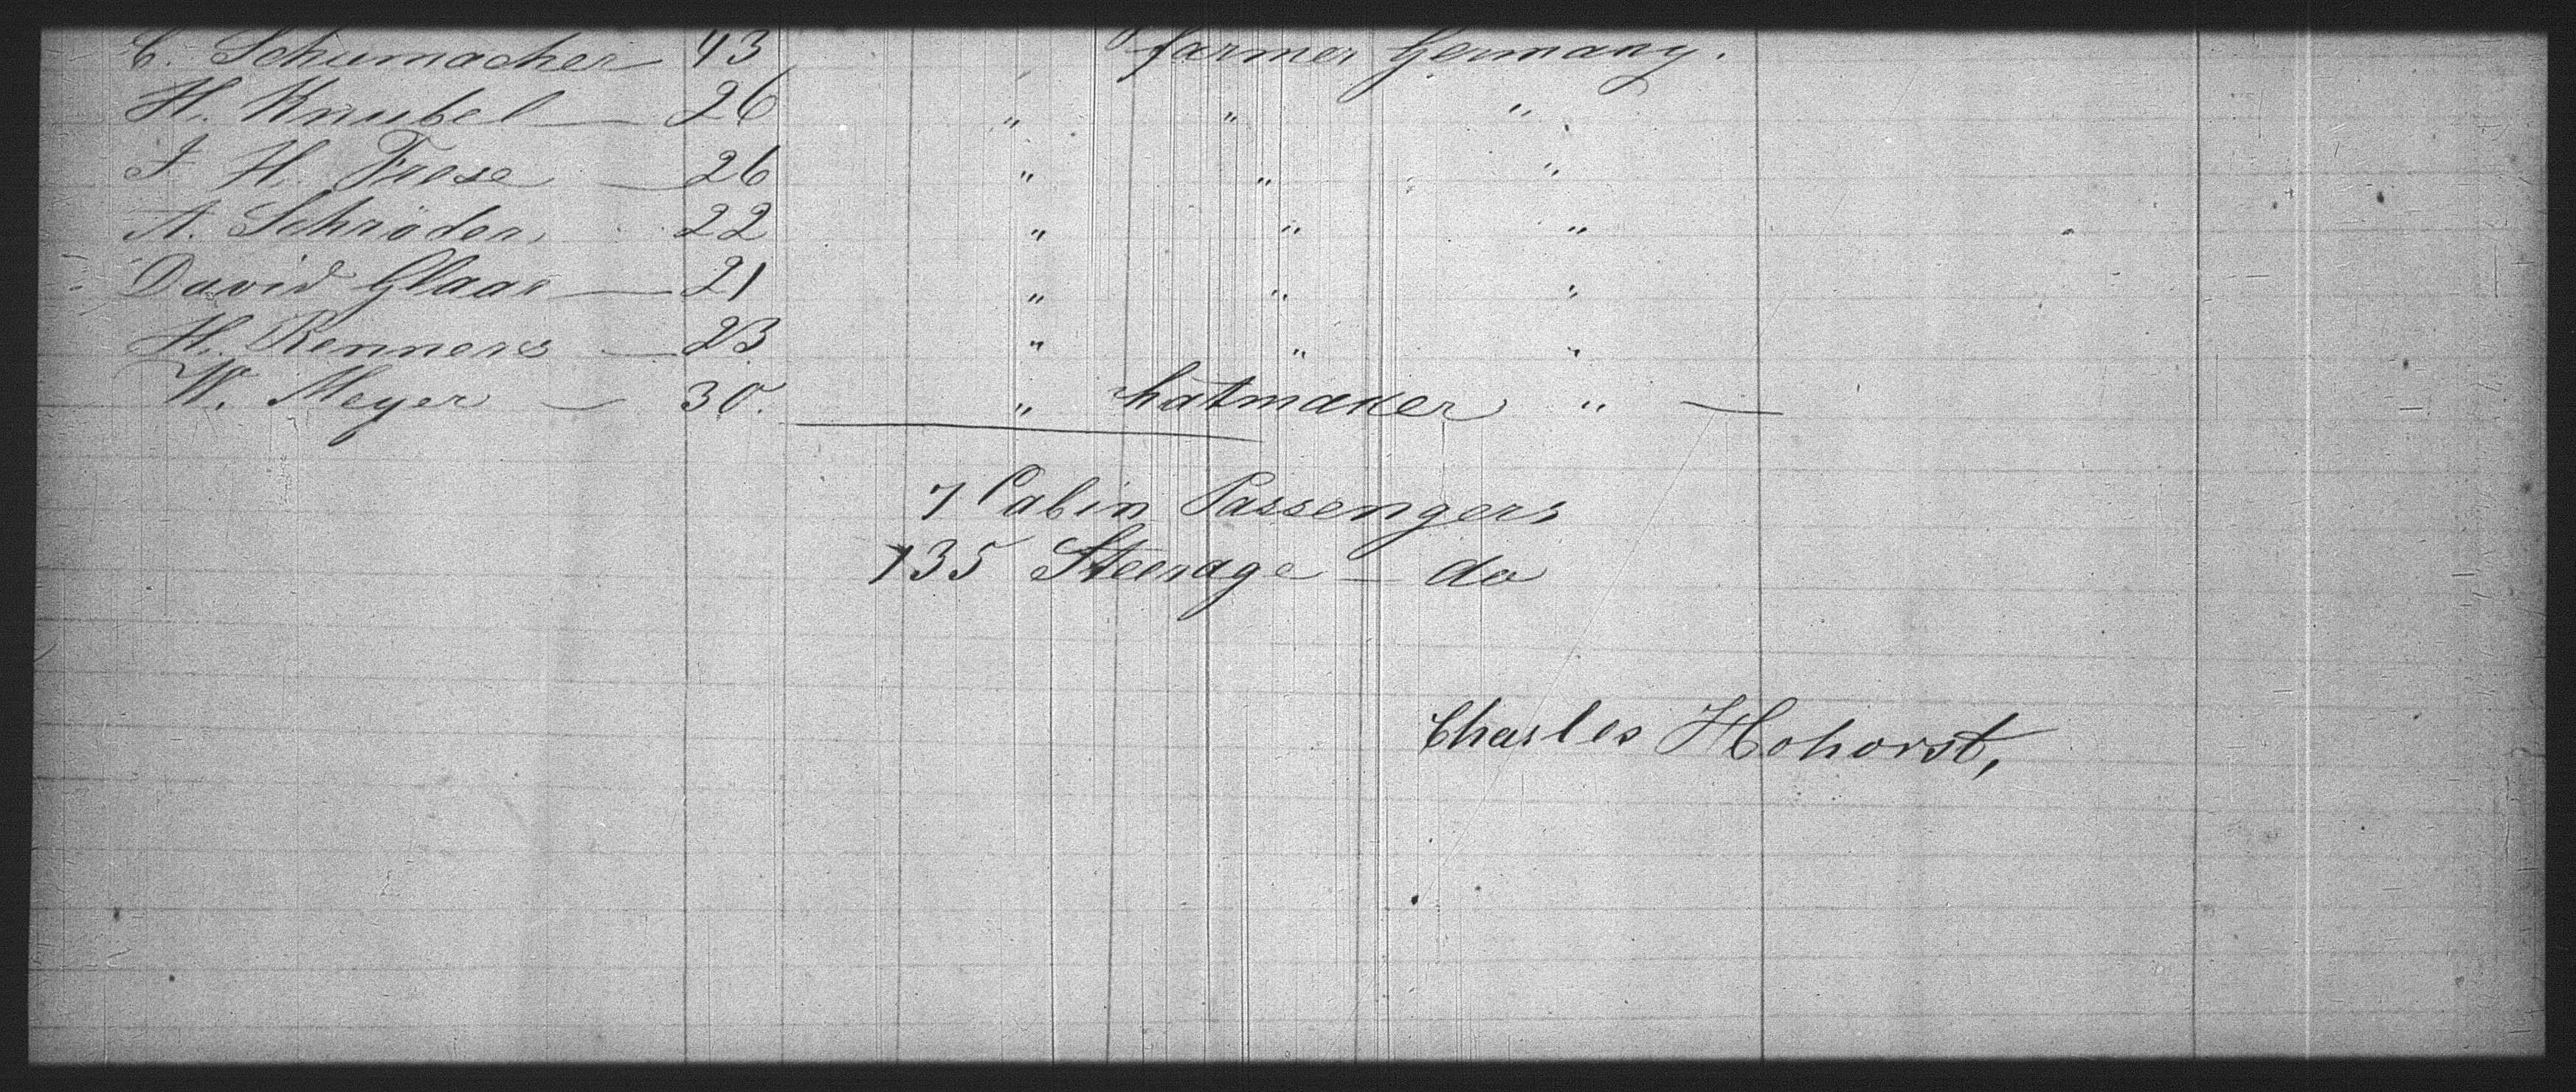 C. Schumacher 43 farmer Germany.
H. Knubel — 26 " " "
J. H. Frese — 26 " " "
A. Schröder 22 " " "
David Glaas — 21 " " "
H. Renners — 23 " " "
W. Meyer — 30. " hatmaker " —
7 Cabin Passengers
135 Steerage — do
Charles Hohorst,